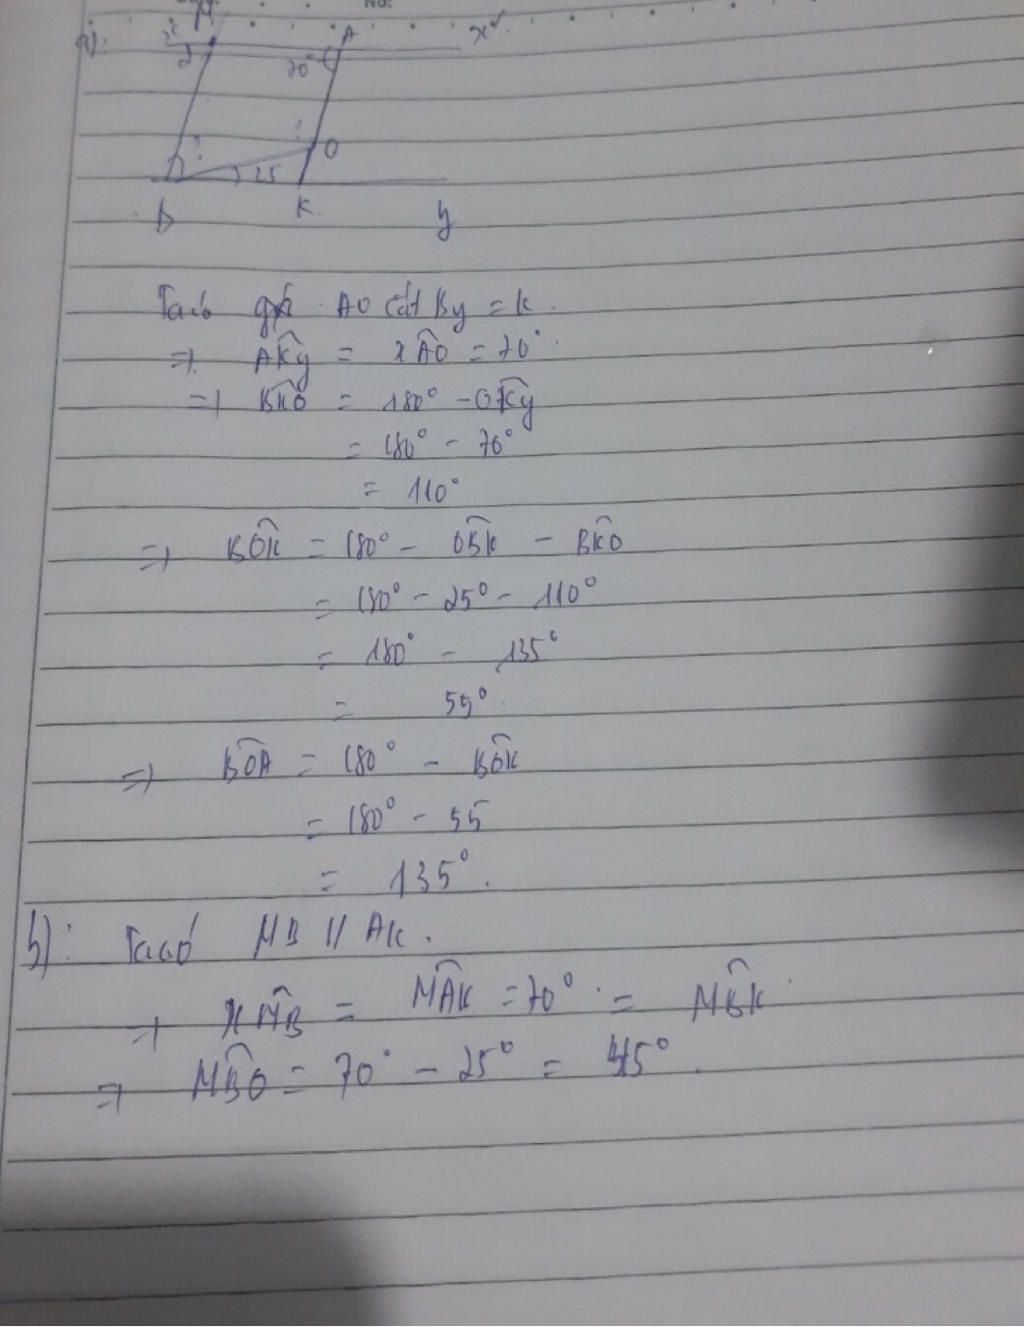 No:
a).
M
A
x'
x
70°
?
?
O
25
B
K.
y
Ta có gọi AO cắt By = K.
=> AKy = xAO = 70°
=> BKO = 180° - OKy
= 180° - 70°
= 110°
=> BOK = 180° - OBK - BKO
= 180° - 25° - 110°
= 180° - 135°
= 55°
=> BOA = 180° - BOK
= 180° - 55
= 135°.
b): Ta có MB // AK.
=> xMB = MAK = 70° = MBK
=> MBO = 70° - 25° = 45°.